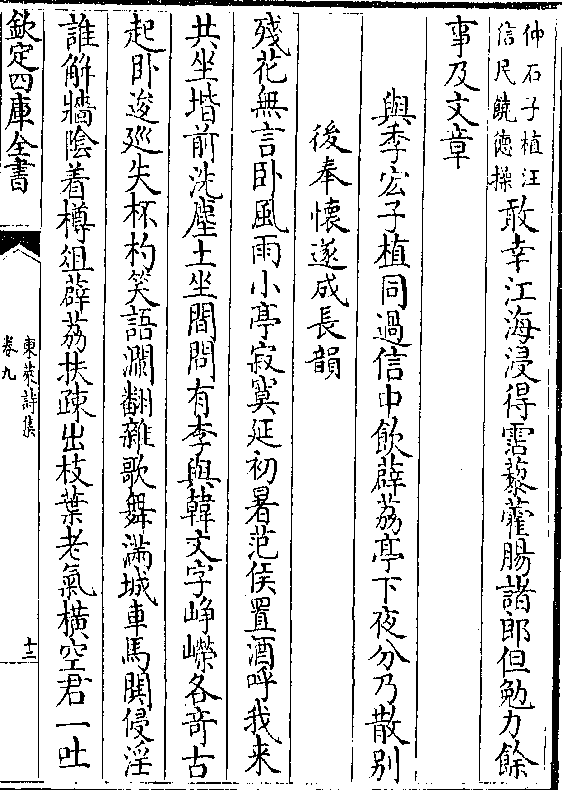 仲石子植汪
信民饒德操
敢幸江海浸得霑藜藿腸諸郎但勉力餘
事及文章
與季宏子植同過信中飲薜荔亭下夜分乃散别
後奉懐遂成長韻
殘花無言卧風雨小亭寂寞延初暑范侯置酒呼我来
共坐堦前洗塵土坐間問有李與韓文字峥嶸各竒古
起卧逡廵失杯杓笑語瀾翻雜歌舞滿城車馬閧侵淫
誰解牆隂着樽俎薜荔扶疎出枝葉老氣横空君一吐
欽定四庫全書
東萊詩集
卷九
十三